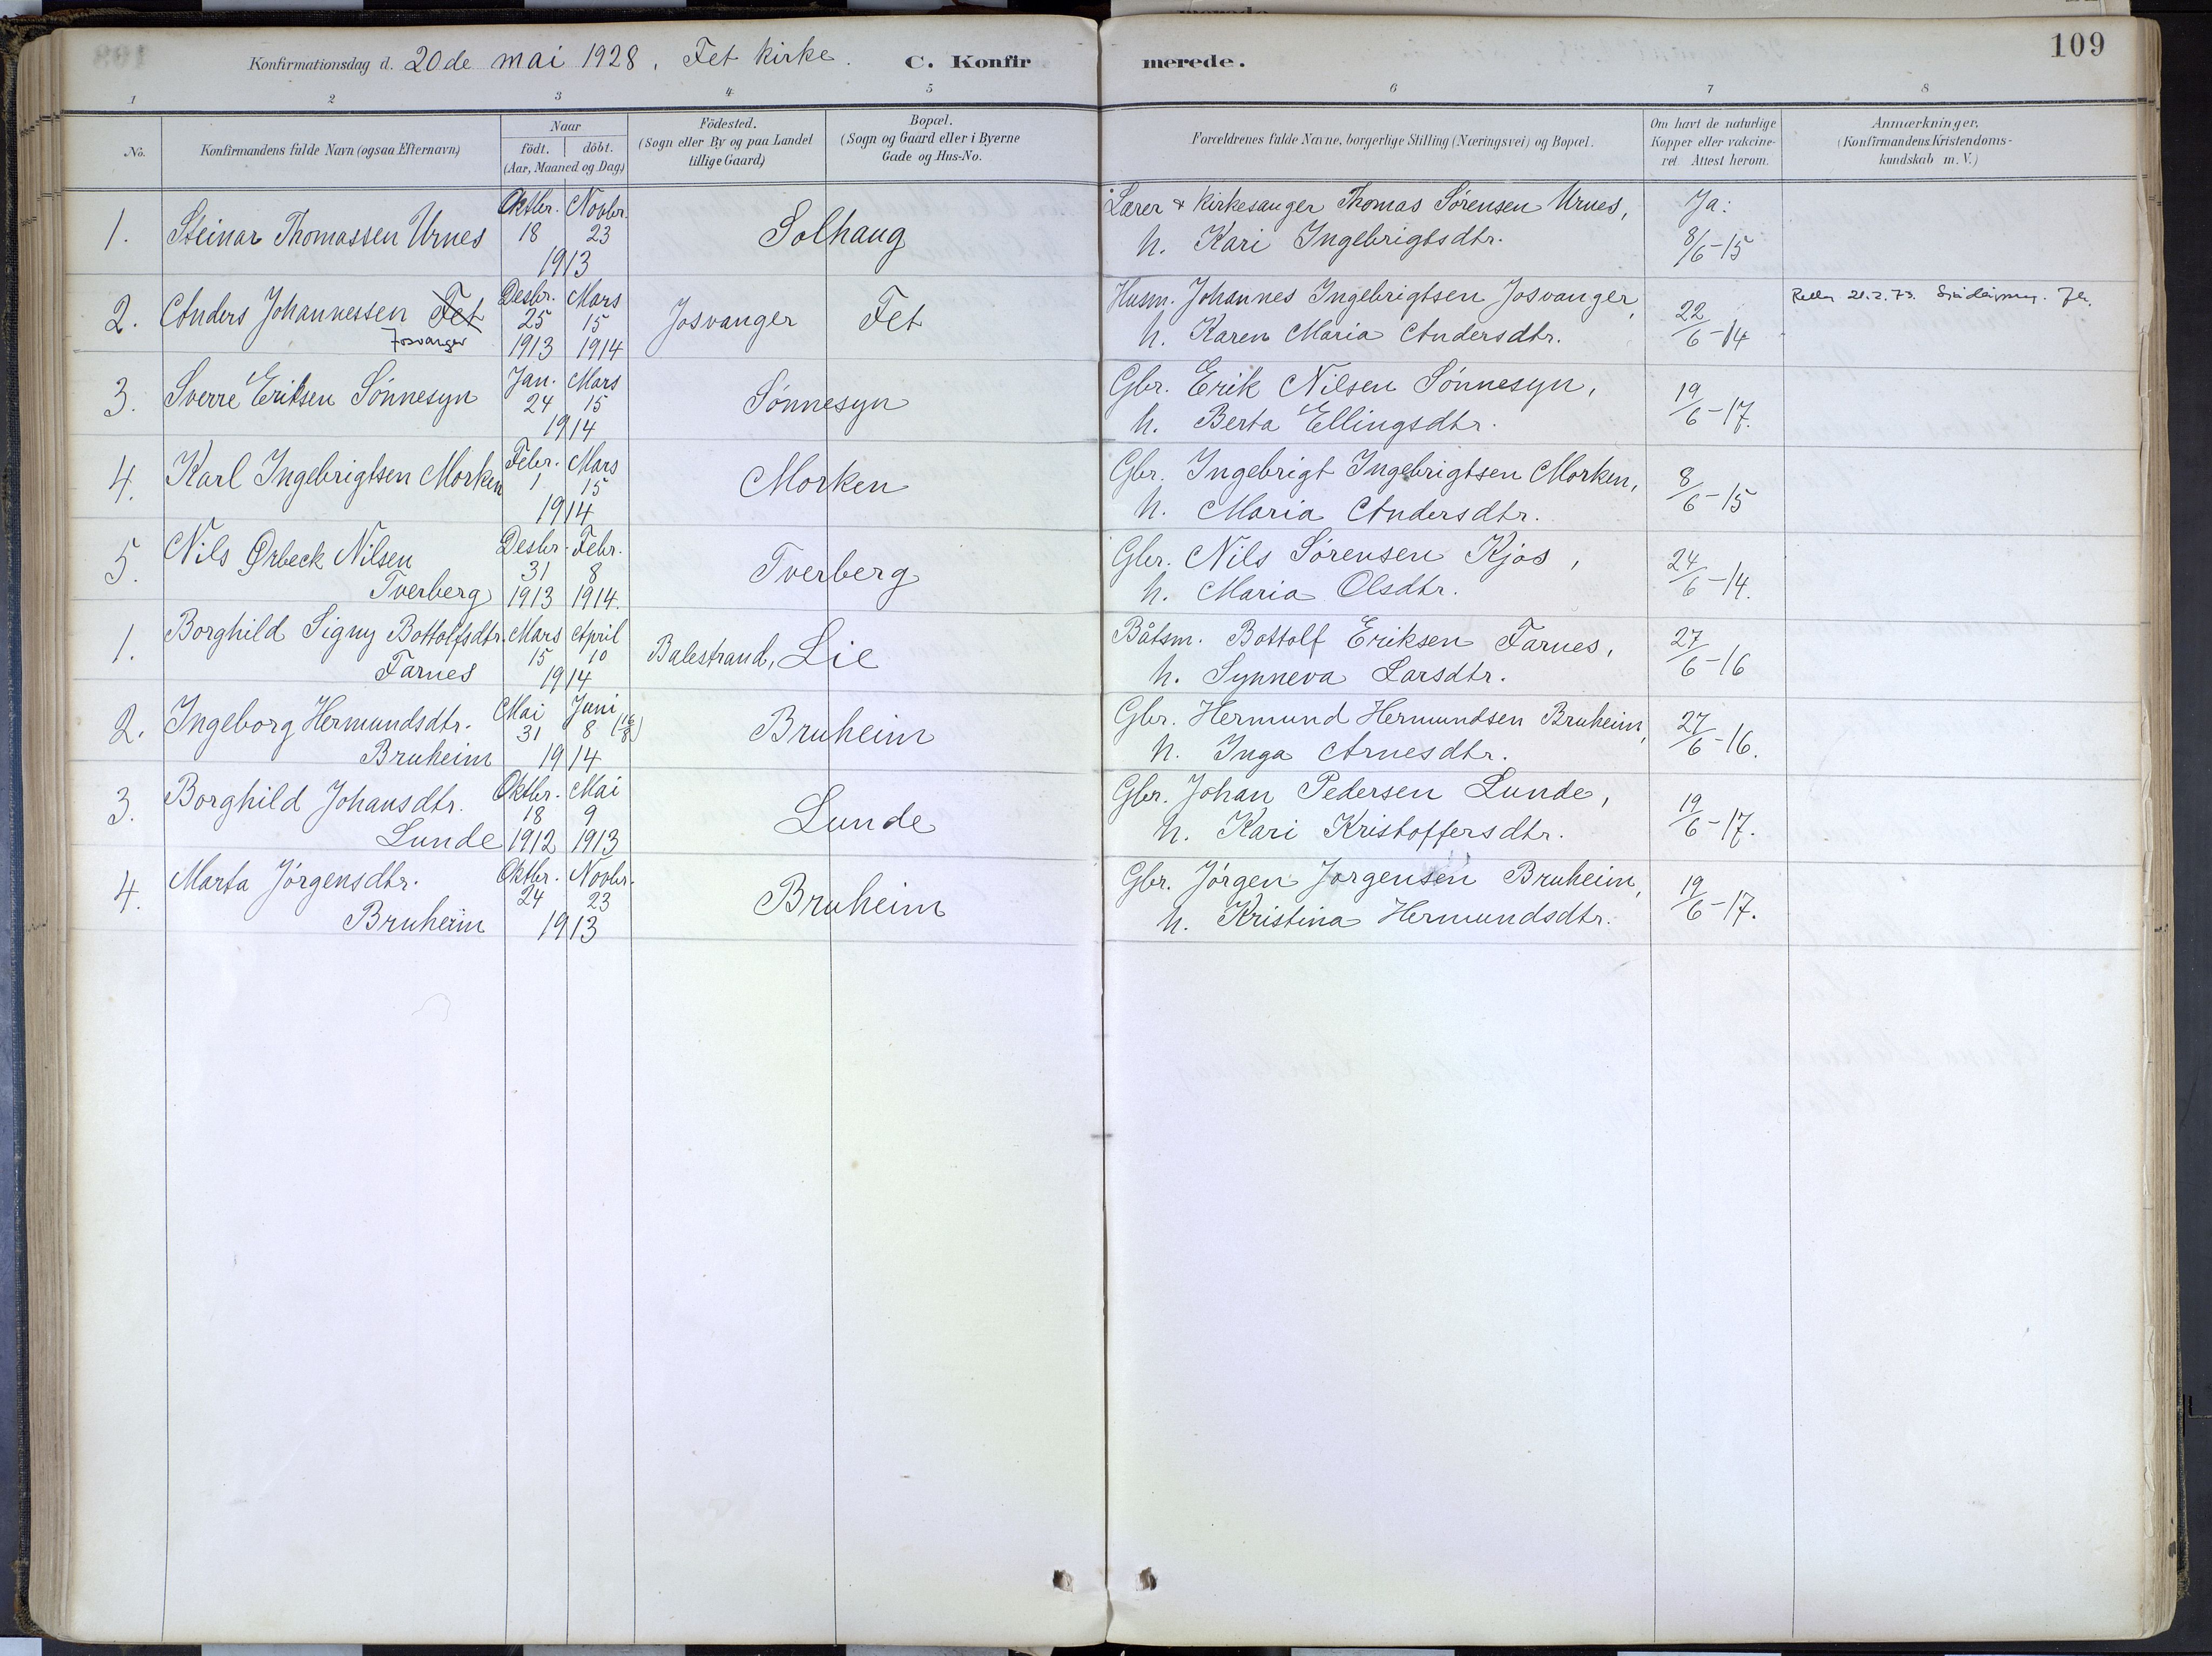 109
Konfirmationsdag d. 20de mai 1928. Fet kirke. C. Konfirmerede.
1 2 3 4 5 6 7 8
No.
Konfirmandens fulde Navn (ogsaa Efternavn)
Naar
födt. döbt.
(Aar, Maaned og Dag)
Födested.
(Sogn eller By og paa Landet
tillige Gaard)
Bopæl.
(Sogn og Gaard eller i Byerne
Gade og Hus-No.
Forældrenes fulde Navne, borgerlige Stilling (Næringsvei) og Bopæl.
Om havt de naturlige
Kopper eller vakcine-
ret Attest herom.
Anmærkninger.
(Konfirmandens Kristendoms-
kundskab m. V.)
1. Steinar Thomassen Urnes
Oktbr. Novbr.
18 23
1913
Solhaug
Lærer & kirkesanger Thomas Sörensen Urnes,
h. Kari Ingebrigtsdtr.
Ja:
8/6-15
2. Anders Johannessen Fet
Josvanger
Desbr. Mars
25 15
1913 1914
Josvanger Fet
Husm. Johannes Ingebrigtsen Josvanger,
h. Karen Maria Andersdtr.
22/6-14
21.2.73.
3. Sverre Eriksen Sönnesyn
Jan. Mars
24 15
1914
Sönnesyn
Gbr. Erik Nilsen Sönnesyn,
h. Berta Ellingsdtr.
19/6-17.
4. Karl Ingebrigtsen Morken
Febr. Mars
1 15
1914
Morken
Gbr. Ingebrigt Ingebrigtsen Morken,
h. Maria Andersdtr.
8/6-15
5. Nils Ørbeck Nilsen
Tverberg
Desbr. Febr.
31 8
1913 1914.
Tverberg
Gbr. Nils Sörensen Kjos,
h. Maria Olsdtr.
24/6-14.
1. Borghild Signy Bottolfsdtr.
Farnes
Mars April
15 10
1914
Balestrand, Lie
Båtsm. Bottolf Eriksen Farnes,
h. Synneva Larsdtr.
27/6-16
2. Ingeborg Hermundsdtr.
Bruheim
Mai Juni
31 8 (16/8)
1914
Bruheim
Gbr. Hermund Hermundsen Bruheim,
h. Inga Arnesdtr.
27/6-16.
3. Borghild Johansdtr.
Lunde
Oktbr. Mai
18 9
1912 1913
Lunde
Gbr. Johan Pedersen Lunde,
h. Kari Kristoffersdtr.
19/6-17.
4. Marta Jörgensdtr.
Bruheim
Oktbr. Novbr.
24 23
1913
Bruheim
Gbr. Jörgen Jörgensen Bruheim,
h. Kristina Hermundsdtr.
19/6-17.